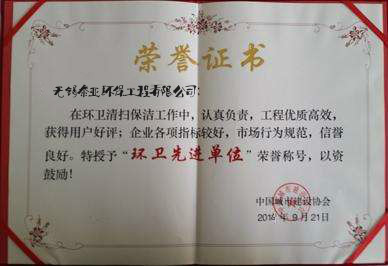 荣誉证书
无锡泰亚环保工程有限公司：
在环卫清扫保洁工作中，认真负责，工程优质高效，
获得用户好评；企业各项指标较好，市场行为规范，信誉
良好。特授予“环卫先进单位”荣誉称号，以资
鼓励！
中国城市建设协会
2014 年 9 月 21 日